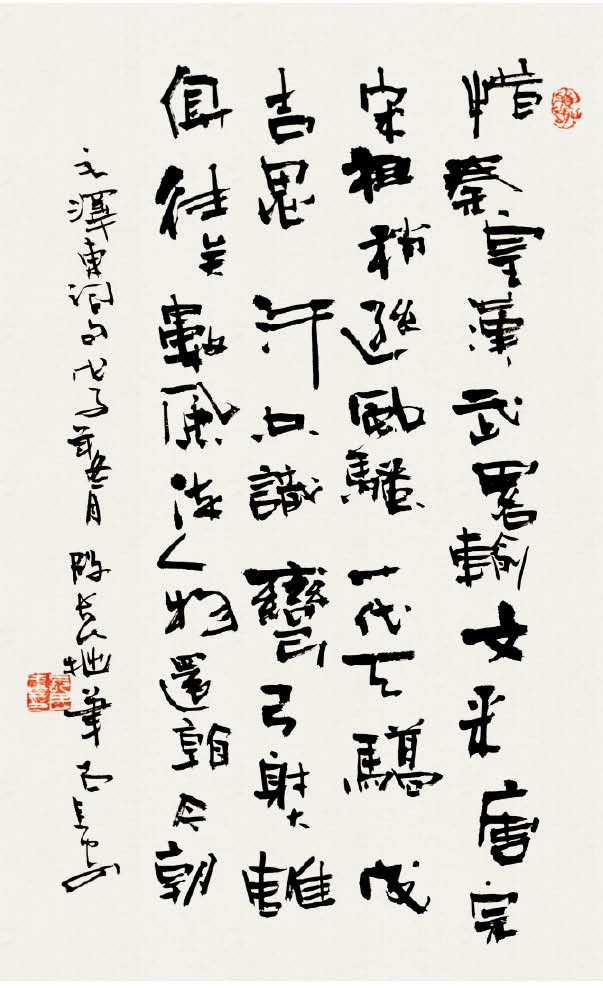 惜秦皇漢武畧輸文采唐宗
宋祖稍遜風騷一代天驕成
吉思汗只識彎弓射大雕
俱往矣數風流人物還看今朝
毛澤東詞句戊子月拙筆長安